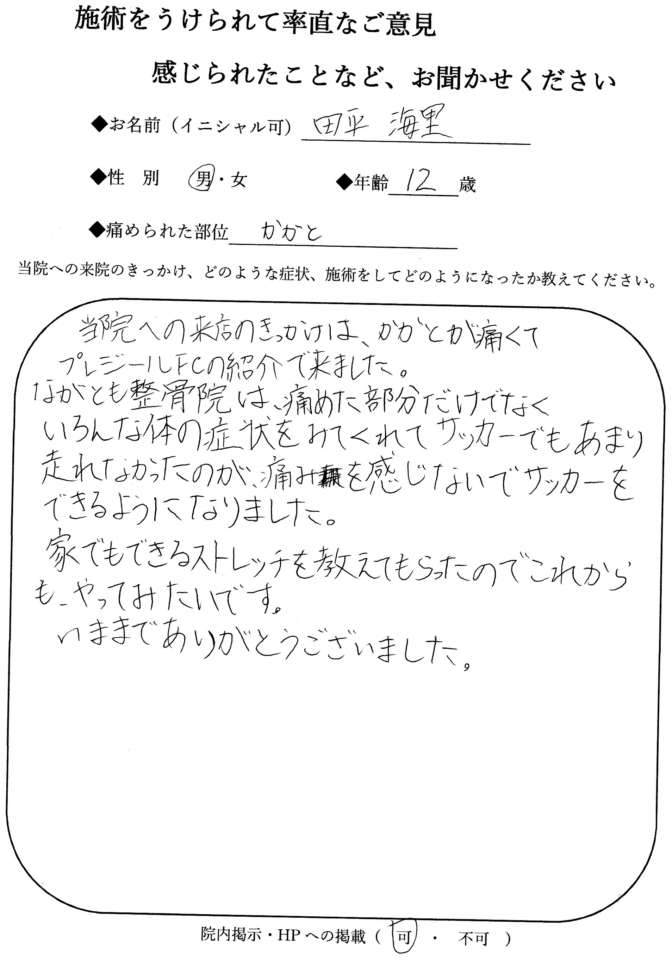 施術をうけられて率直なご意見
感じられたことなど、お聞かせください
◆お名前（イニシャル可） 田平 海里
◆性 別 男・女 ◆年齢 12 歳
◆痛められた部位 かかと
当院への来院のきっかけ、どのような症状、施術をしてどのようになったか教えてください。
当院への来店のきっかけは、かかとが痛くて
プレジールFCの紹介で来ました。
ながとも整骨院は、痛めた部分だけでなく
いろんな体の症状をみてくれてサッカーでもあまり
走れなかったのが、痛みを感じないでサッカーを
できるようになりました。
家でもできるストレッチを教えてもらったのでこれから
も、やってみたいです。
いままでありがとうございました。
院内掲示・HPへの掲載（ 可 ・ 不可 ）